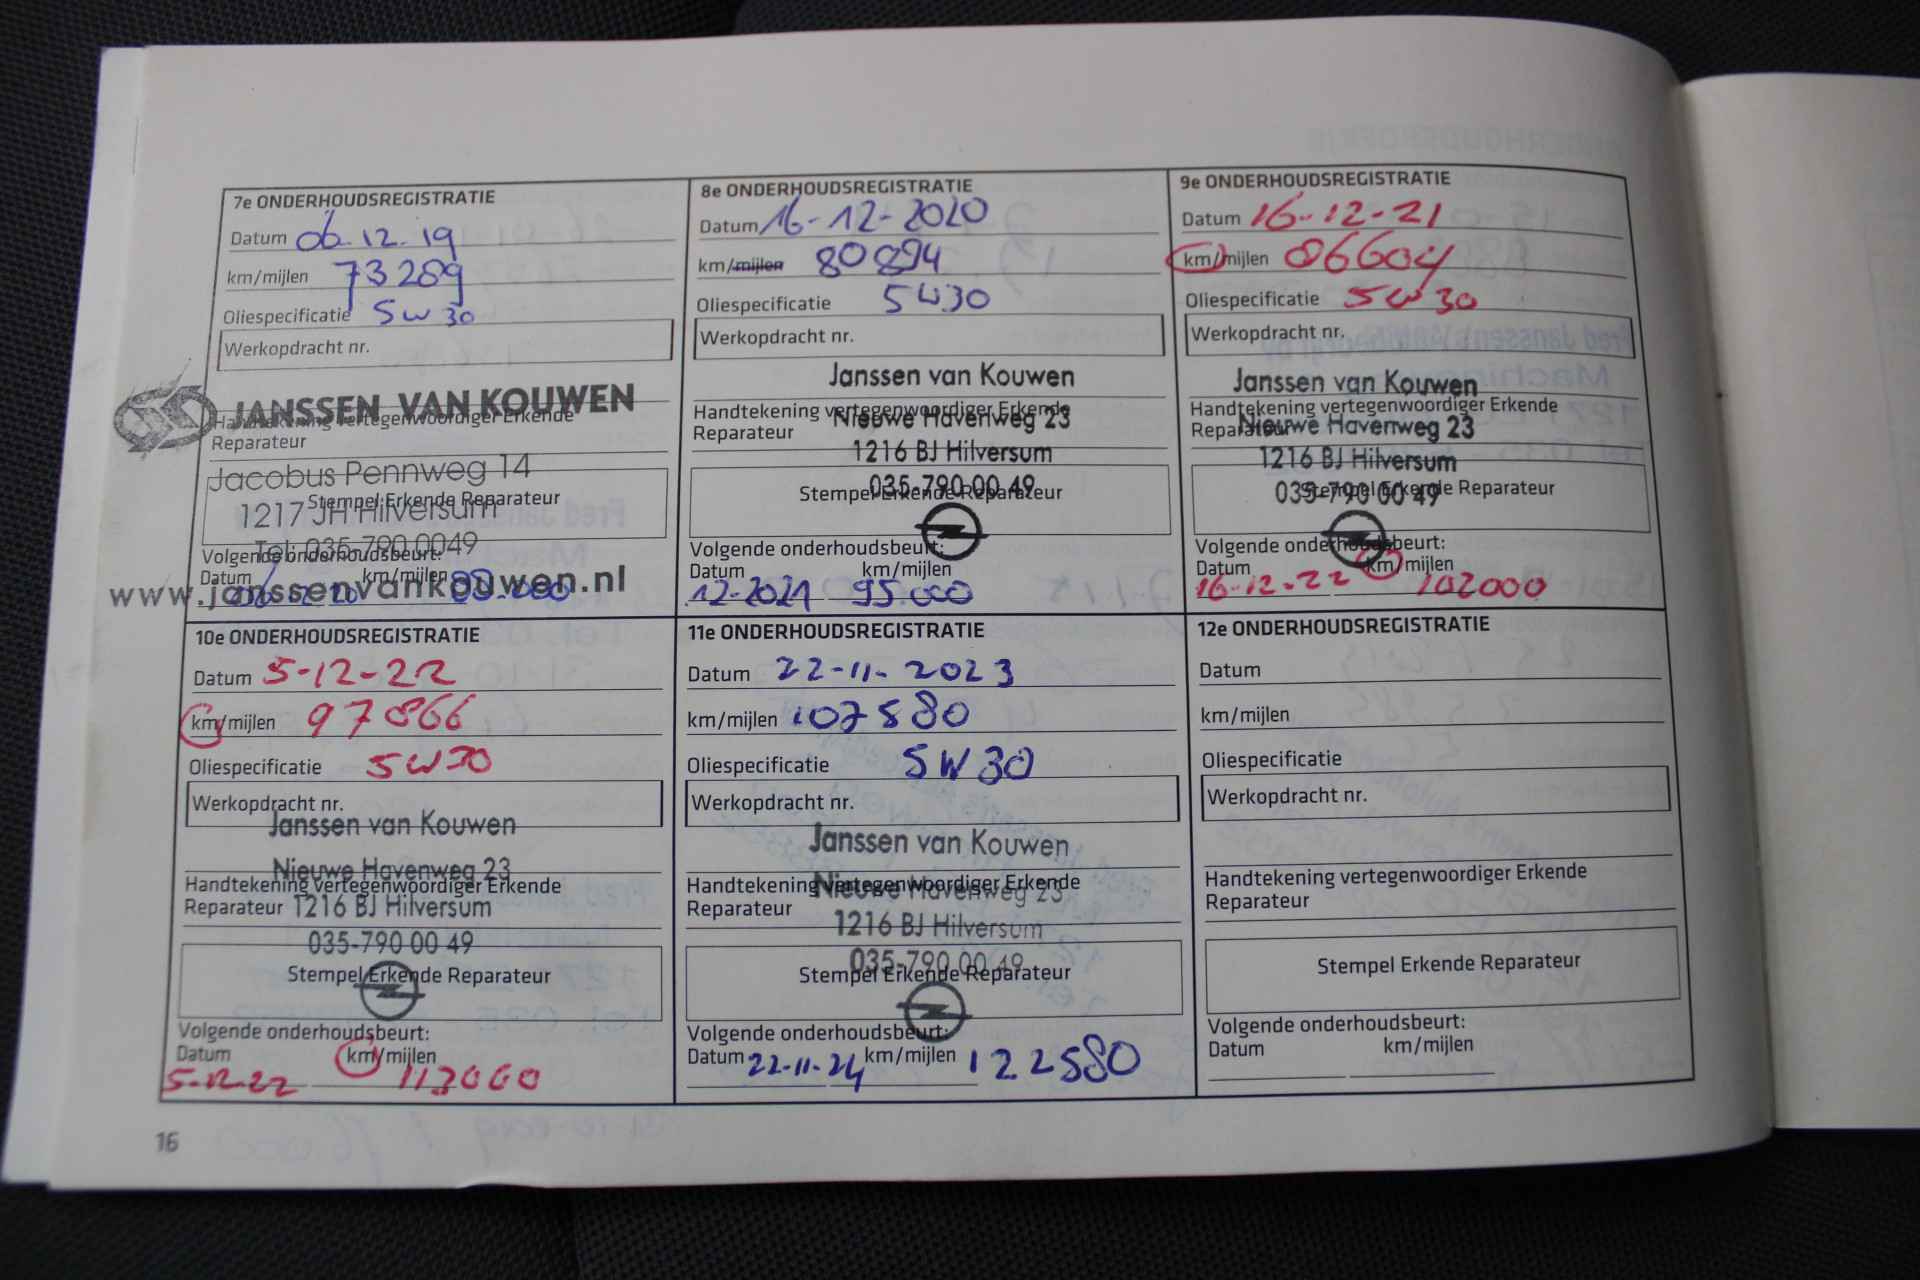 7e ONDERHOUDSREGISTRATIE
Datum 06.12.19
km/mijlen 73289
Oliespecificatie 5W30
Werkopdracht nr.
JANSSEN VAN KOUWEN
Handtekening vertegenwoordiger Erkende
Reparateur
Jacobus Pennweg 14
Stempel Erkende Reparateur
1217 JH Hilversum
Tel: 035-790 0049
Volgende onderhoudsbeurt:
Datum km/mijlen
www.janssenvankouwen.nl
8e ONDERHOUDSREGISTRATIE
Datum 16-12-2020
km/mijlen 80894
Oliespecificatie 5W30
Werkopdracht nr.
Janssen van Kouwen
Handtekening vertegenwoordiger Erkende
Nieuwe Havenweg 23
Reparateur
1216 BJ Hilversum
035-790 00 49
Stempel Erkende Reparateur
Volgende onderhoudsbeurt:
Datum km/mijlen
12-2021 95.000
9e ONDERHOUDSREGISTRATIE
Datum 16-12-21
km/mijlen 86604
Oliespecificatie 5W30
Werkopdracht nr.
Janssen van Kouwen
Handtekening vertegenwoordiger Erkende
Nieuwe Havenweg 23
Reparateur
1216 BJ Hilversum
035-790 00 49
Stempel Erkende Reparateur
Volgende onderhoudsbeurt:
Datum km/mijlen
16-12-22 102000
10e ONDERHOUDSREGISTRATIE
Datum 5-12-22
km/mijlen 97866
Oliespecificatie 5W30
Werkopdracht nr.
Janssen van Kouwen
Nieuwe Havenweg 23
Handtekening vertegenwoordiger Erkende
Reparateur
1216 BJ Hilversum
035-790 00 49
Stempel Erkende Reparateur
Volgende onderhoudsbeurt:
Datum km/mijlen
5-12-22 113000
11e ONDERHOUDSREGISTRATIE
Datum 22-11-2023
km/mijlen 107580
Oliespecificatie 5W30
Werkopdracht nr.
Janssen van Kouwen
Handtekening vertegenwoordiger Erkende
Nieuwe Havenweg 23
Reparateur
1216 BJ Hilversum
035-790 00 49
Stempel Erkende Reparateur
Volgende onderhoudsbeurt:
Datum 22-11-24 km/mijlen 122580
12e ONDERHOUDSREGISTRATIE
Datum
km/mijlen
Oliespecificatie
Werkopdracht nr.
Handtekening vertegenwoordiger Erkende
Reparateur
Stempel Erkende Reparateur
Volgende onderhoudsbeurt:
Datum km/mijlen
16